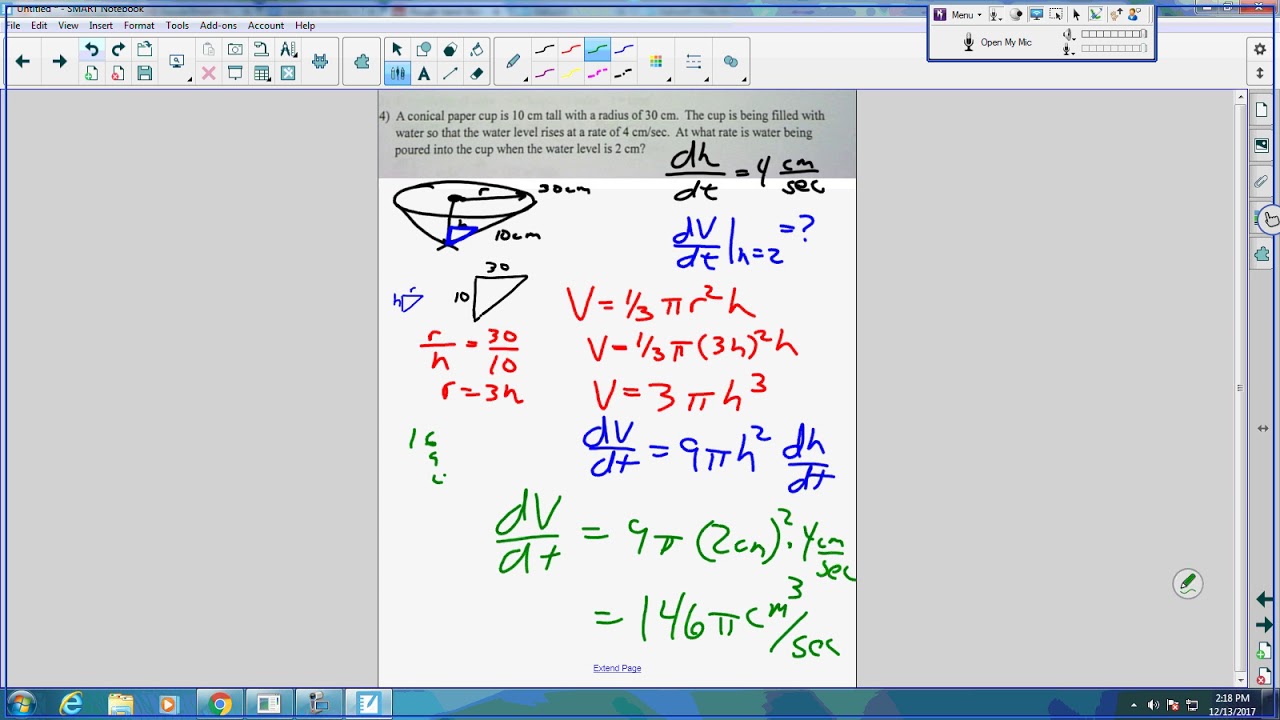 Untitled * - SMART Notebook
File Edit View Insert Format Tools Add-ons Account Help
Menu
Open My Mic
4) A conical paper cup is 10 cm tall with a radius of 30 cm. The cup is being filled with
water so that the water level rises at a rate of 4 cm/sec. At what rate is water being
poured into the cup when the water level is 2 cm?
dh/dt = 4 cm/sec
r 30cm
h 10cm
dV/dt|h=2 = ?
30
10
h r
V = 1/3 πr²h
r/h = 30/10
V = 1/3 π(3h)²h
r = 3h
V = 3πh³
16
9
dV/dt = 9πh² dh/dt
dV/dt = 9π(2cm)² · 4 cm/sec
= 146π cm³/sec
Extend Page
2:18 PM
12/13/2017